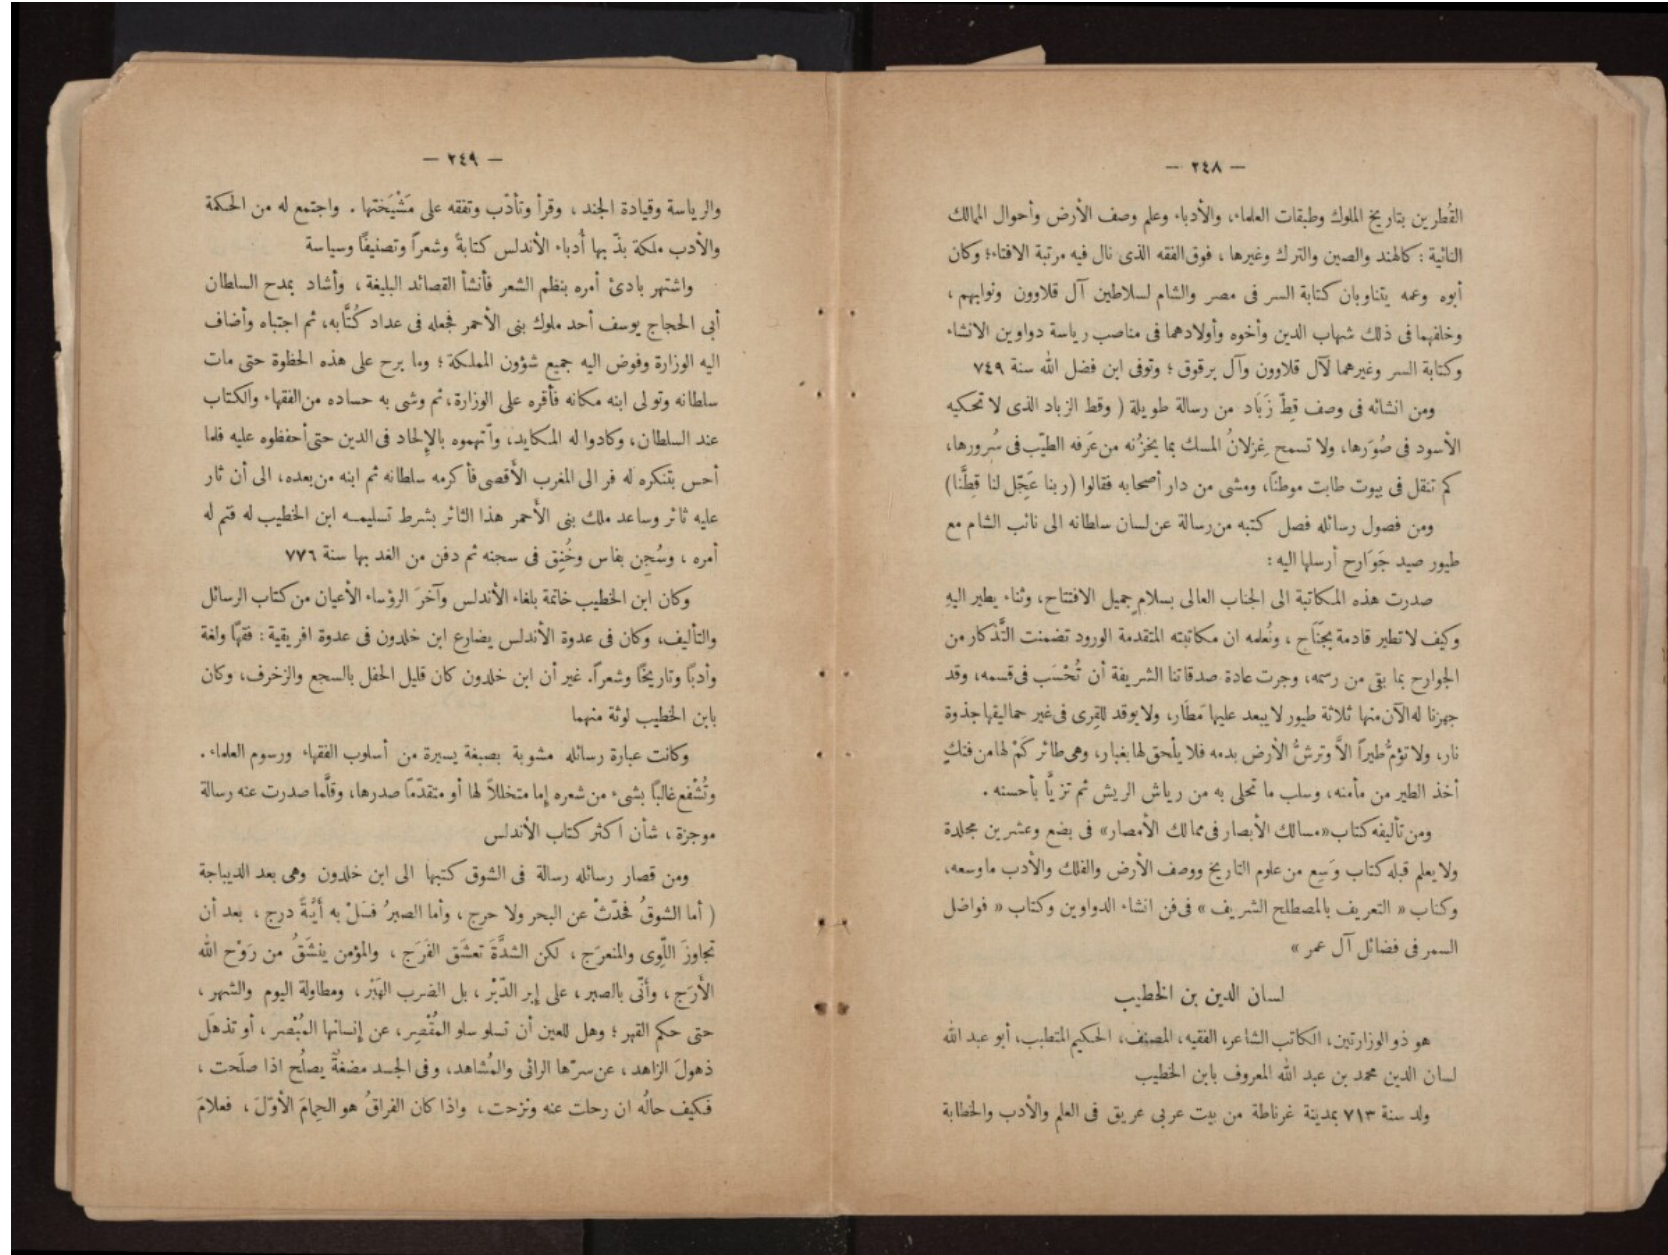 — ٢٤٨ —
القُطرين بتاريخ الملوك وطبقات العلماء، والأدباء وعلم وصف الأرض وأحوال الممالك
النائية : كالهند والصين والترك وغيرها ، فوق الفقه الذى نال فيه مرتبة الافتاء؛ وكان
أبوه وعمه يتناوبان كتابة السر فى مصر والشام لسلاطين آل قلاوون ونوابهم ،
وخلفهما فى ذلك شهاب الدين وأخوه وأولادهما فى مناصب رياسة دواوين الانشاء
وكتابة السر وغيرهما لآل قلاوون وآل برقوق ؛ وتوفى ابن فضل الله سنة ٧٤٩
ومن انشائه فى وصف قِطّ زَبَاد من رسالة طويلة ( وقط الزباد الذى لا تحكيه
الأسود فى صُوَرها، ولا تسمح غِزلانُ المسك بما يخزُنه من عَرفه الطيّب فى سُرورها،
كم تنقل فى بيوت طابت موطنًا، ومشى من دار أصحابه فقالوا (ربنا عَجِّل لنا قِطَّنا)
ومن فصول رسائله فصل كتبه من رسالة عن لسان سلطانه الى نائب الشام مع
طيور صيد جَوَارح أرسلها اليه :
صدرت هذه المكاتبة الى الجناب العالى بسلام جميل الافتتاح، وثناء يطير اليهِ
وكيف لا تطير قادمة بجَنَاح ، ونُعلمه ان مكاتبته المتقدمة الورود تضمنت التَّذكار من
الجوارح بما بقى من رسمه، وجرت عادة صدقاتنا الشريفة أن تُحْسَب فى قسمه، وقد
جهزنا له الآن منها ثلاثة طيور لا يبعد عليها مَطَار، ولا يوقد للقِرى فى غير حماليقها جذوة
نار، ولا تؤمُّ طيراً الاَّ وترشُّ الأرض بدمه فلا يلْحق لها بغبار، وهى طائر كَمْ لها من فتكٍ
أخذ الطير من مأمنه، وسلب ما تحلى به من رياش الريش ثم تزيَّا بأحسنه .
ومن تأليفه كتاب «مسالك الأبصار فى ممالك الأمصار» فى بضع وعشرين مجلدة
ولا يعلم قبله كتاب وَسِع من علوم التاريخ ووصف الأرض والفلك والأدب ما وسعه،
وكتاب « التعريف بالمصطلح الشريف » فى فن انشاء الدواوين وكتاب « فواضل
السمر فى فضائل آل عمر »
لسان الدين بن الخطيب
هو ذو الوزارتين، الكاتب الشاعر، الفقيه، المصنّف، الحكيم المتطبب، أبو عبد الله
لسان الدين محمد بن عبد الله المعروف بابن الخطيب
ولد سنة ٧١٣ بمدينة غرناطة من بيت عربى عريق فى العلم والأدب والخطابة
— ٢٤٩ —
والرياسة وقيادة الجند ، وقرأ وتأدّب وتفقه على مَشْيَختها . واجتمع له من الحكمة
والأدب ملكة بذّ بها أُدباء الأندلس كتابةً وشعراً وتصنيفًا وسياسة
واشتهر بادئ أمره بنظم الشعر فأنشأ القصائد البليغة ، وأشاد بمدح السلطان
أبى الحجاج يوسف أحد ملوك بنى الأحمر فجعله فى عداد كُتَّابه، ثم اجتباه وأضاف
اليه الوزارة وفوض اليه جميع شؤون المملكة ؛ وما برح على هذه الحظوة حتى مات
سلطانه وتولى ابنه مكانه فأقره على الوزارة، ثم وشى به حساده من الفقهاء والكتاب
عند السلطان، وكادوا له المكايد، واتّهموه بالإلحاد فى الدين حتى أحفظوه عليه فلما
أحس بتنكره له فر الى المغرب الأقصى فأكرمه سلطانه ثم ابنه من بعده، الى أن ثار
عليه ثائر وساعد ملك بنى الأحمر هذا الثائر بشرط تسليمه ابن الخطيب له فتم له
أمره ، وسُجِن بفاس وخُنِق فى سجنه ثم دفن من الغد بها سنة ٧٧٦
وكان ابن الخطيب خاتمة بلغاء الأندلس وآخرَ الرؤساء الأعيان من كتاب الرسائل
والتأليف، وكان فى عدوة الأندلس يضارع ابن خلدون فى عدوة افريقية : فقهًا ولغة
وأدبًا وتاريخًا وشعراً. غير أن ابن خلدون كان قليل الحفل بالسجع والزخرف، وكان
بابن الخطيب لوثة منهما
وكانت عبارة رسائله مشوبة بصبغة يسيرة من أسلوب الفقهاء ورسوم العلماء .
وتُشْفع غالبًا بشىء من شعره إما متخللاً لها أو متقدّمًا صدرها، وقلَّما صدرت عنه رسالة
موجزة ، شأن اكثر كتاب الأندلس
ومن قصار رسائله رسالة فى الشوق كتبها الى ابن خلدون وهى بعد الديباجة
( أما الشوقُ فحَدّثْ عن البحر ولا حرج ، وأما الصبرُ فسَلْ به أيَّةَ درج ، بعد أن
تجاوزَ اللّوى والمنعرَج ، لكن الشدَّةَ تعشَق الفَرَج ، والمؤمن ينشَقُ من رَوْح الله
الأَرَج ، وأنّى بالصبر ، على إبر الدّبْر ، بل الضرب الهَبْر ، ومطاولة اليوم والشهر ،
حتى حكم القهر ؛ وهل للعين أن تسلو سلو المُقْصِر، عن إنسانها المُبْصر ، أو تذهَل
ذهولَ الزاهد ، عن سرّها الرائى والمُشاهد، وفى الجسد مضغةٌ يصلُح اذا صلَحت ،
فكيف حالُه ان رحلت عنه ونزحت ، واذا كان الفراقُ هو الحِمامَ الأوّلَ ، فعلامَ